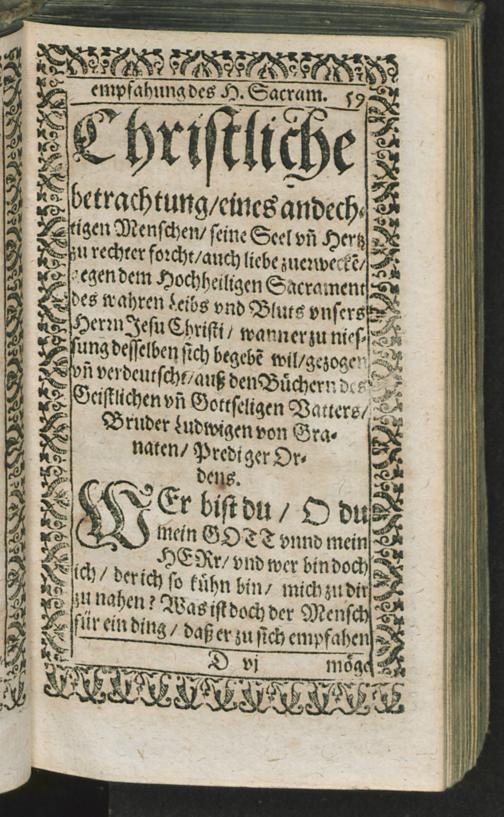 empfahung des H. Sacram. 59
Christliche
betrachtung/eines andech-
tigen Menschen/ seine Seel vñ Hertz
zu rechter forcht/auch liebe zuerweckē/
gegen dem Hochheiligen Sacrament
des wahren Leibs vnd Bluts vnsers
Herrn Jesu Christi/ wann er zu nies-
sung desselben sich begebē wil/gezogen
vñ verdeutscht/auß den Büchern des
Geistlichen vñ Gottseligen Vatters/
Bruder Ludwigen von Gra-
naten/ Prediger Or-
dens.
WEr bist du/ O du
mein GOTT vnnd mein
HERr/ vnd wer bin doch
ich/ der ich so kühn bin/ mich zu dir
zu nahen? Was ist doch der Mensch
für ein ding/ daß er zu sich empfahen
D vj möge